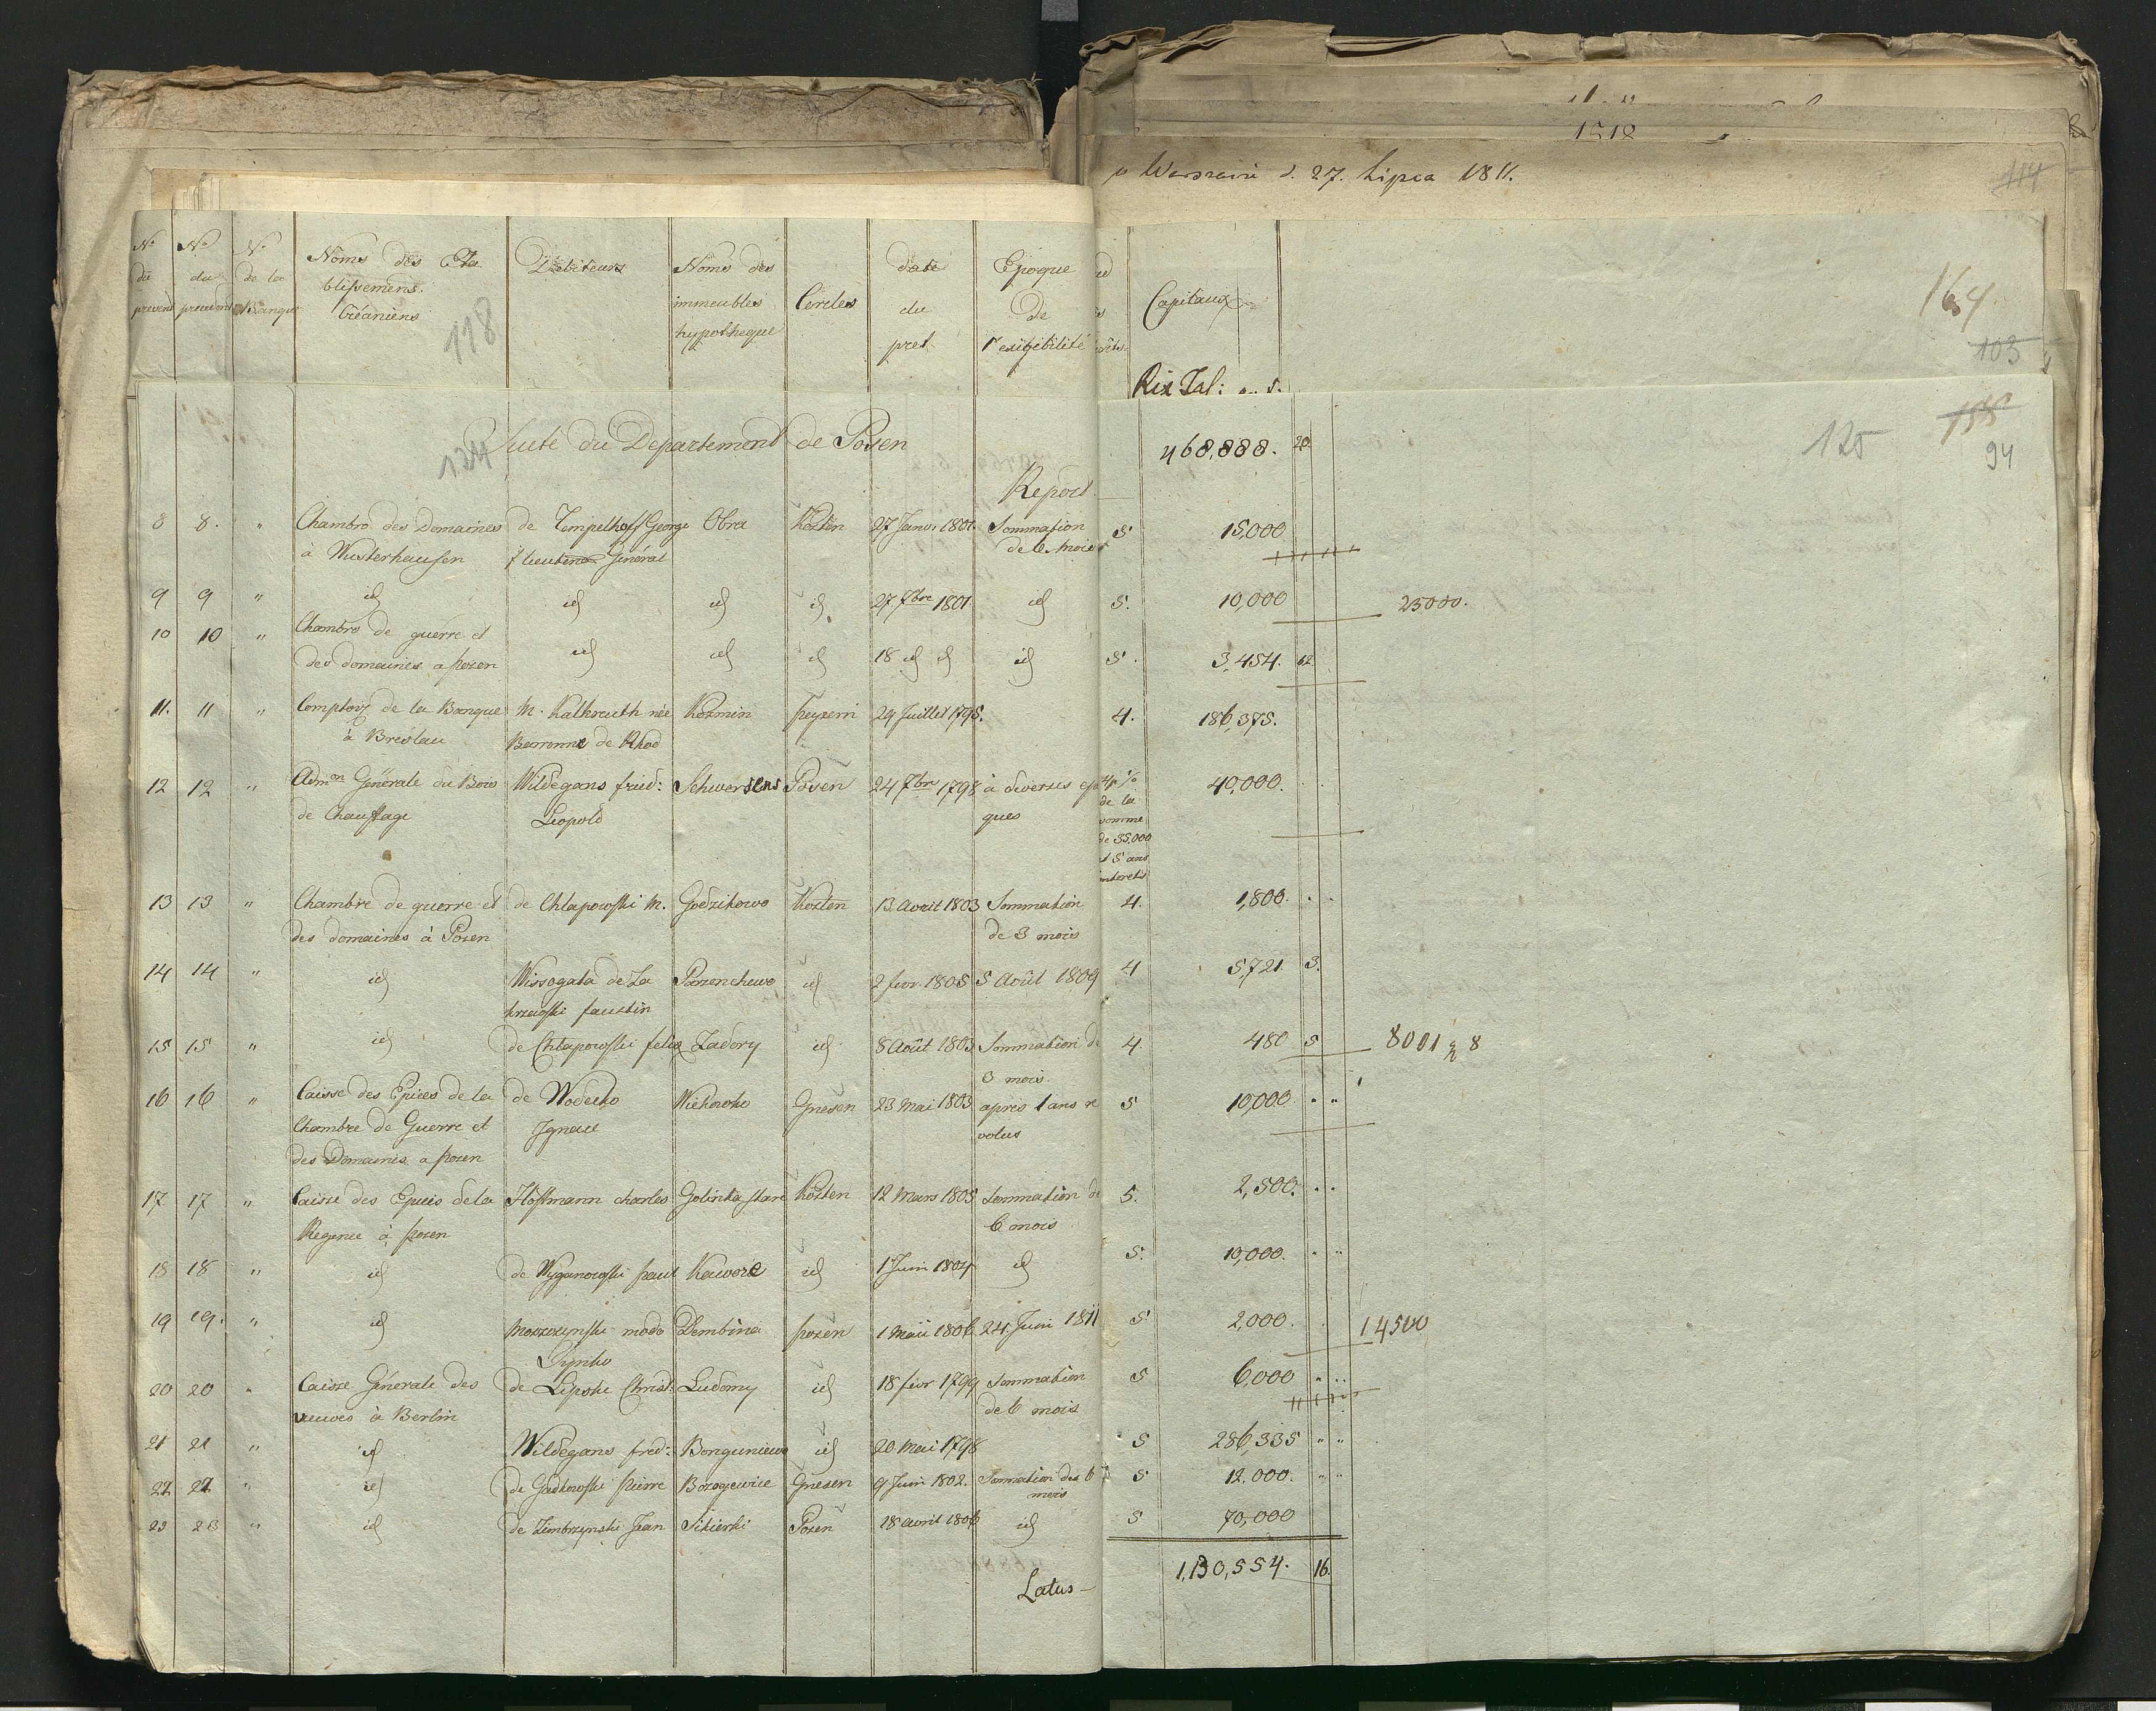 w Warszawie d. 27. Lipca 1811.
114
1512
No du
No du
No de la Banque
Noms des Eta
blissemens
Créanciers
Debiteurs
Noms des
immeubles
hypotheque
Cercles
date
du
pret
Epoque
de
l'exigibilité
Capitaux
Rix Tal:
118
164
103
Suite du Departement de Posen
124
Report
468,888. 20
125
155
94
8 8. " Chambre des Domaines de Tempelhoff George Obra Kosten 27 Janv. 1801. Sommation 5 15,000
à Wusterhausen Lieutenant Général de 6 Mois
9 9 " id id id id 27 7bre 1801 id 5. 10,000 25000.
10 10 " Chambre de guerre et
des domaines a posen id id id 18 id id id 5. 3,454. 12
11. 11 " Comptoir de la Banque M. Kalkreuth née Kozmin peysern 29 Juillet 1795. 4. 186,375.
à Breslau Baronne de Rhod
12 12 " Admon Générale du Bois Wildegans fried: Schwersens Posen 24 7bre 1798 à diverses epo 4p% 40,000.
de Chauffage Leopold ques de la
somme
de 35,000
et 5 ans
interets
13 13 " Chambre de guerre et de Chlapowski M. Godzikowo Kosten 13 avril 1803 Sommation 4. 1,800.
des domaines à Posen de 3 mois
14 14 " id Wissogata de Za Parzenchewo id 2 fevr. 1805 5 Août 1809 4 5,721. 3.
krzewski faustin
15 15 " id de Chlapowski felix Zadory id 8 Août 1803 Sommation de 4. 480 5 8001 8
3 mois.
16 16 " Caisse des Epices de la de Wodecko Wiekowko Gnesen 23 Mai 1803 après 1 ans re 5 10,000
Chambre de Guerre et Ignace volus
des Domaines a posen
17 17 " Caisse des Epices de la Hoffmann charles Golinka stare Kosten 12 Mars 1805 Sommation de 5. 2,500.
Regence à posen 6 mois
18 18 " id de Wyganowski paul Kawore id 1 Juin 1804 id 5. 10,000.
19 19. " id Moszczynski modo Dembina posen 1 Maii 1806. 24 Juin 1811 5 2,000. 14500
Lipsko
20 20 " Caisse Générale des de Lipski Christ: Ludomy id 18 fevr 1799 Sommation 5 6,000
veuves à Berlin de 6 mois
21 21 " id Wildegans fred: Bonguniewo id 20 Mai 1798 5 286,335
22 22 " id de Gutkowski Pierre Borzyewice Gnesen 9 Juin 1802. Sommation des 6 5 12,000.
mois
23 23 " id de Zimbrzynski Jean Sikierki Posen 18 avril 1806 id 5 70,000
Latus - 1,130,554. 16.